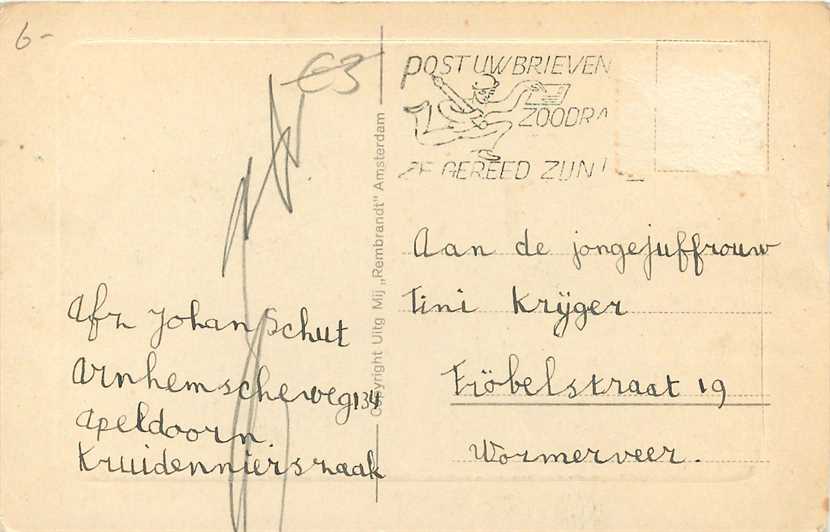 6-
€3
POST UW BRIEVEN
ZOODRA
ZE GEREED ZIJN!
Copyright Uitg Mij „Rembrandt" Amsterdam
Aan de jongejuffrouw
Tini Krijger
Fröbelstraat 19
Wormerveer.
Afz Johan Schut
Arnhemscheweg 134
Apeldoorn.
Kruidenierszaak